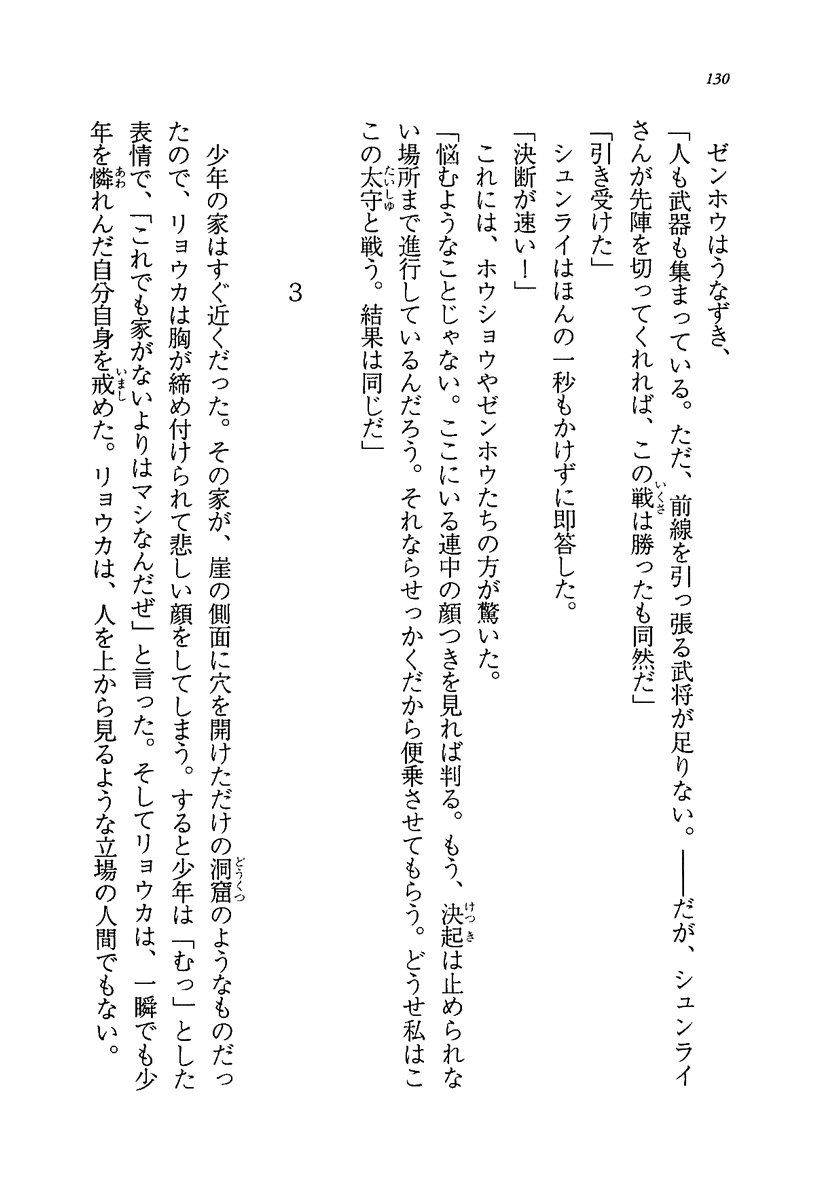 130
　ゼンホウはうなずき、
「人も武器も集まっている。ただ、前線を引っ張る武将が足りない。――だが、シュンライ
さんが先陣を切ってくれれば、この戦は勝ったも同然だ」
「引き受けた」
　シュンライはほんの一秒もかけずに即答した。
「決断が速い！」
　これには、ホウショウやゼンホウたちの方が驚いた。
「悩むようなことじゃない。ここにいる連中の顔つきを見れば判る。もう、決起は止められな
い場所まで進行しているんだろう。それならせっかくだから便乗させてもらう。どうせ私はこ
この太守と戦う。結果は同じだ」
3
　少年の家はすぐ近くだった。その家が、崖の側面に穴を開けただけの洞窟のようなものだっ
たので、リョウカは胸が締め付けられて悲しい顔をしてしまう。すると少年は「むっ」とした
表情で、「これでも家がないよりはマシなんだぜ」と言った。そしてリョウカは、一瞬でも少
年を憐れんだ自分自身を戒めた。リョウカは、人を上から見るような立場の人間でもない。